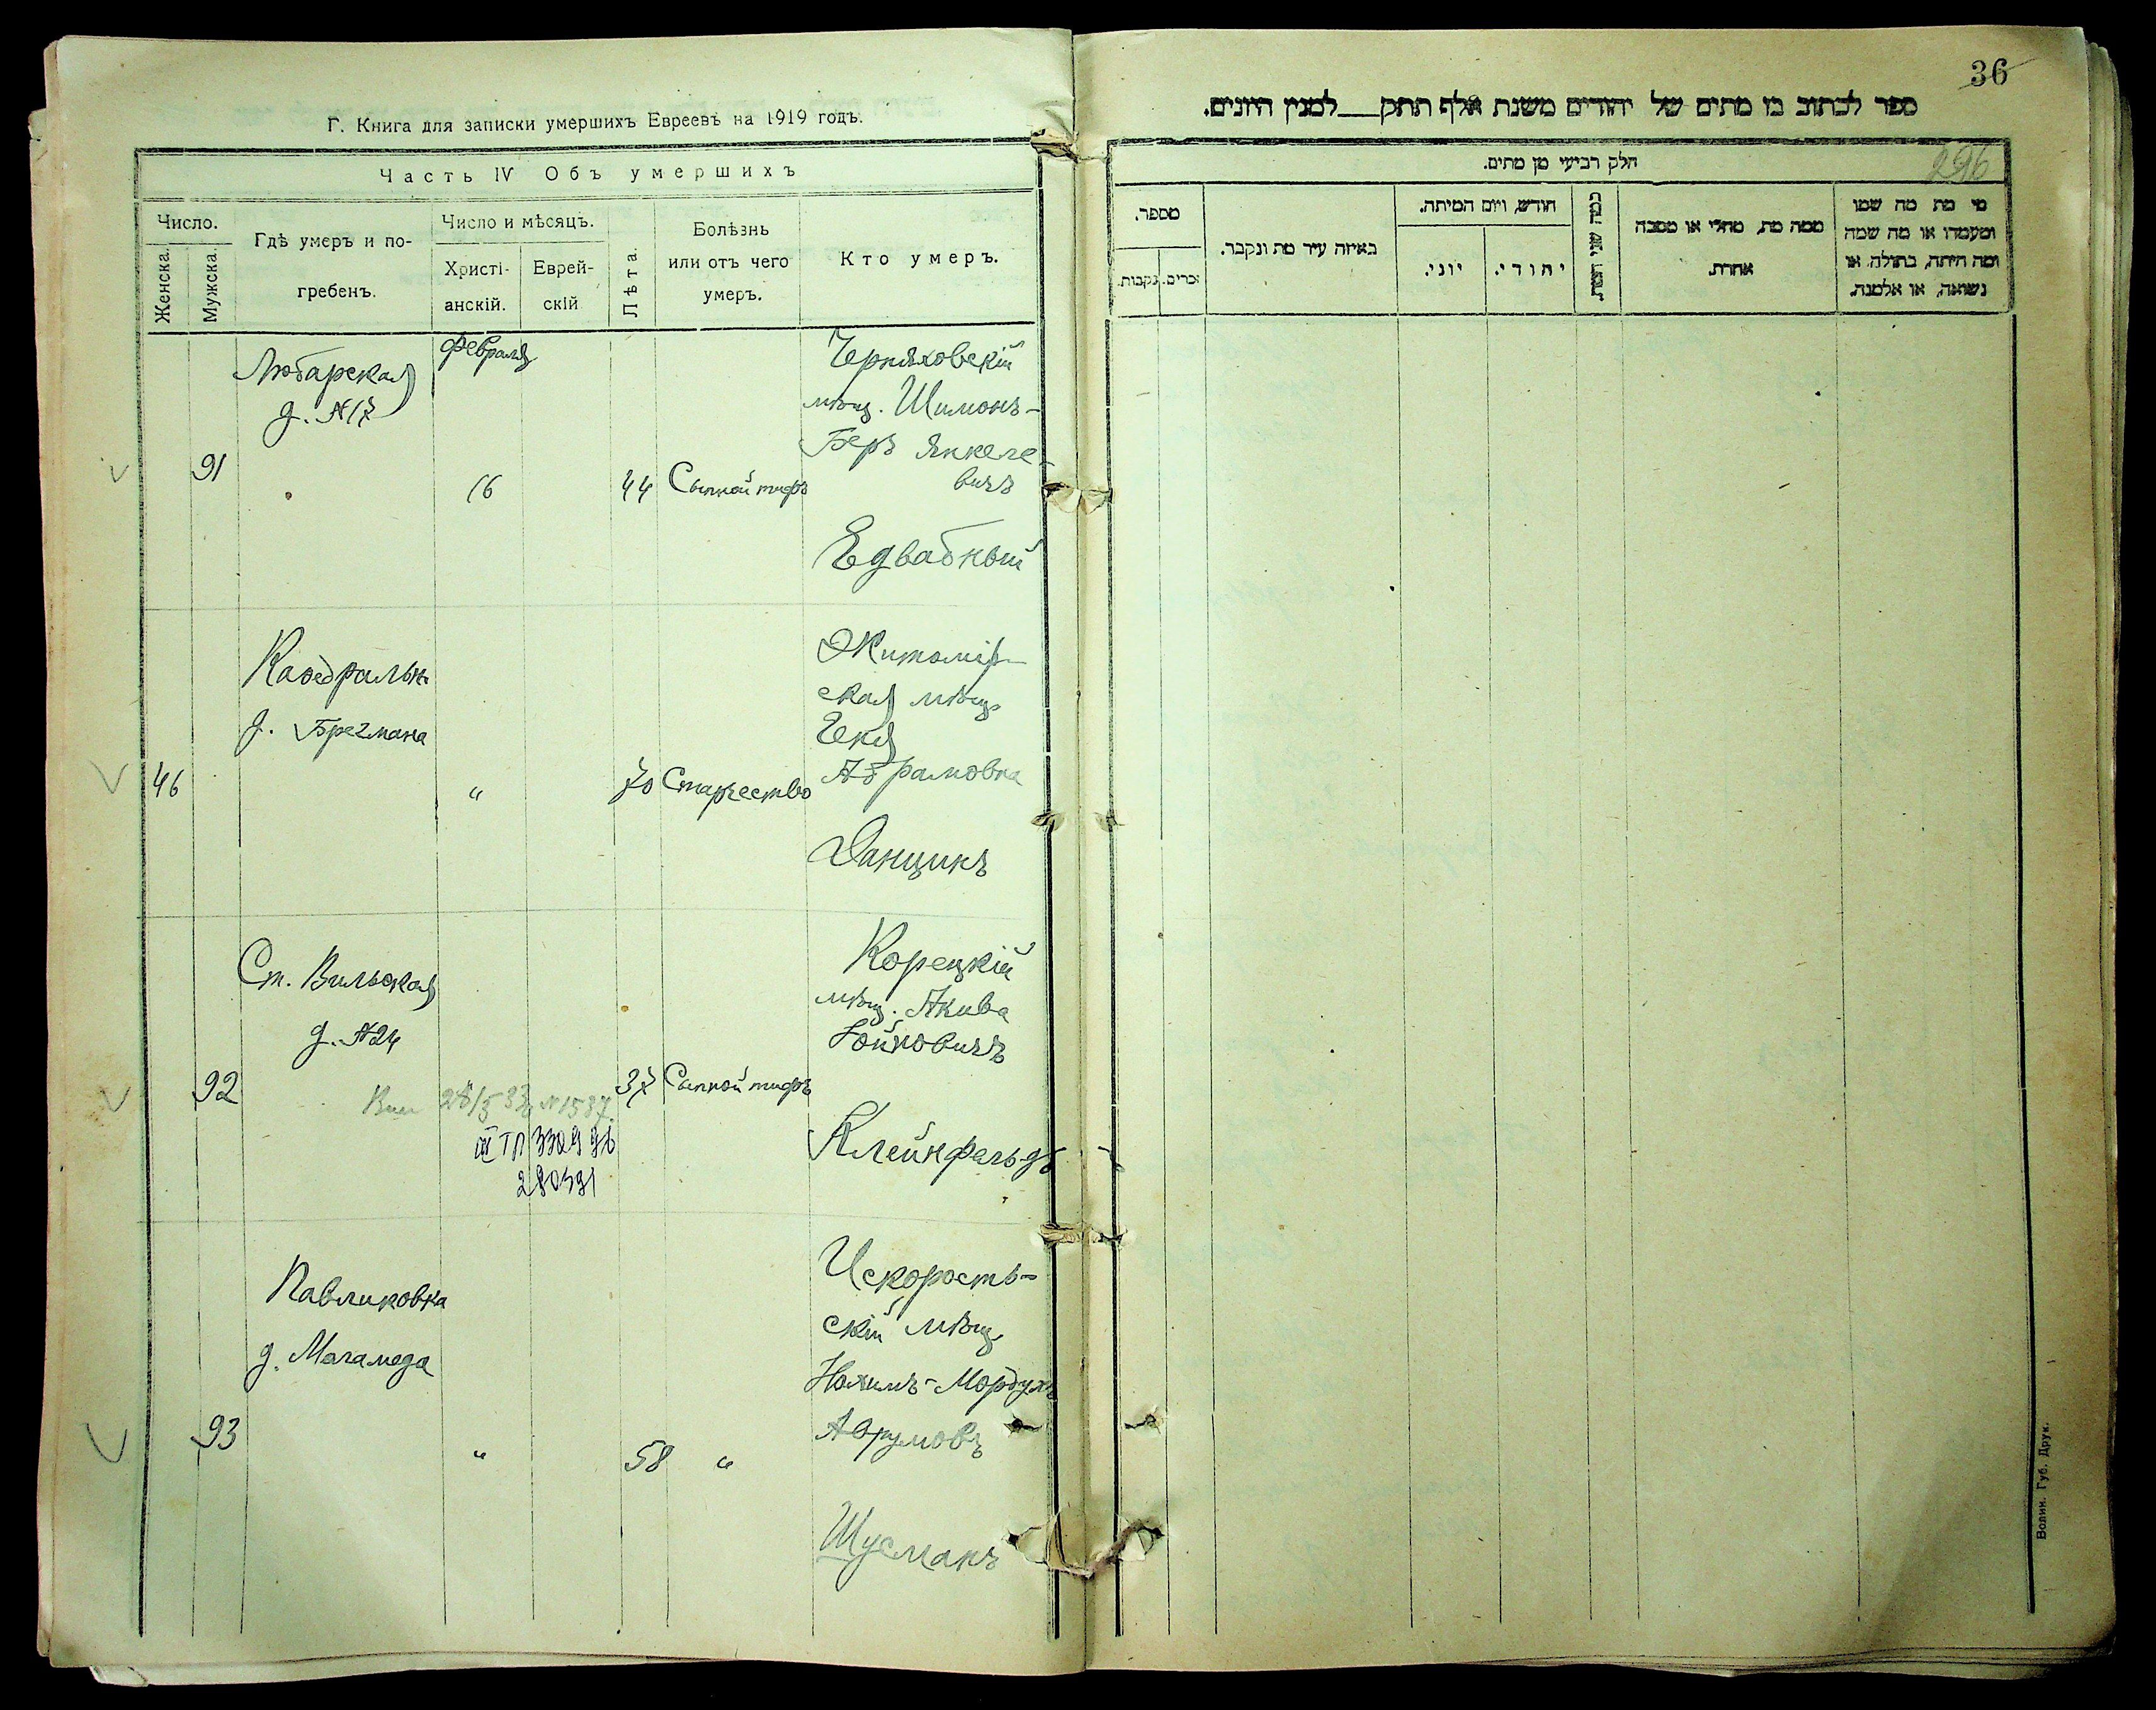 Г. Книга для записки умершихъ Евреевъ на 1919 годъ.
Часть IV Объ умершихъ
Число.
Женска.
Мужска.
Гдѣ умеръ и по-
гребенъ.
Число и мѣсяцъ.
Христі-
анскій.
Еврей-
скій
Лѣта.
Болѣзнь
или отъ чего
умеръ.
Кто умеръ.
Любарская
д. №17
февраля
91
16
44
Сыпной тифъ
Черняховскій
мѣщ. Шимонъ-
Беръ Янкеле-
вичъ
Едвабный
Каѳедральн.
д. Брегмана
46
"
70
Старчество
Житомір-
ская мѣщ.
Абрамовна
Данцикъ
Ст. Вильская
д. №24
92
37
Сыпной тифъ
Корецкій
мѣщ. Акива
Клейнфельдъ
28/5 33 №1537
III ТП 332996
Павликовка
д. Магамеда
93
"
58
"
Искорость-
скій мѣщ.
Нахимъ-Мордухъ
Аврумовъ
Шусманъ
36
296
ספר לכתוב בו מתים של יהודים משנת אלף תתק___למנין היונים.
חלק רביעי מן מתים.
מספר.
זכרים.
נקבות.
באיזה עיר מת ונקבר.
חודש, ויום המיתה.
יוני.
יהודי.
כמה שני המת.
ממה מת, מחלי או מסבה
אחרת.
מי מת מה שמו
ומעמדו או מה שמה
ומה היתה, בתולה או
נשואה, או אלמנה.
Волин. Губ. Друк.